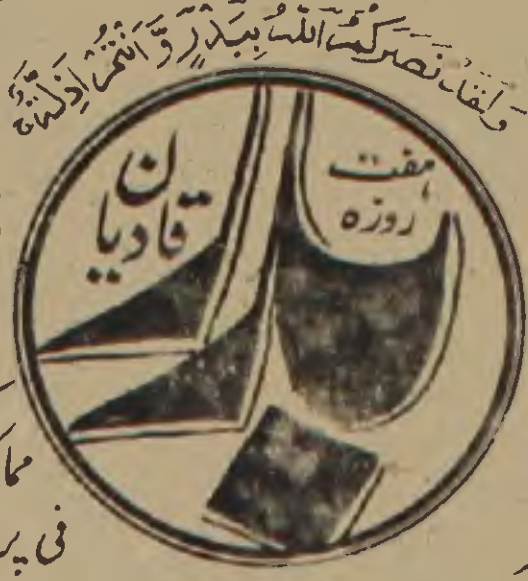 وَلَقَدْ نَصَرَكُمُ اللّٰهُ بِبَدْرٍ وَّاَنْتُمْ اَذِلَّةٌ
ہفت
روزہ
بدر
قادیان
مما
فی پر